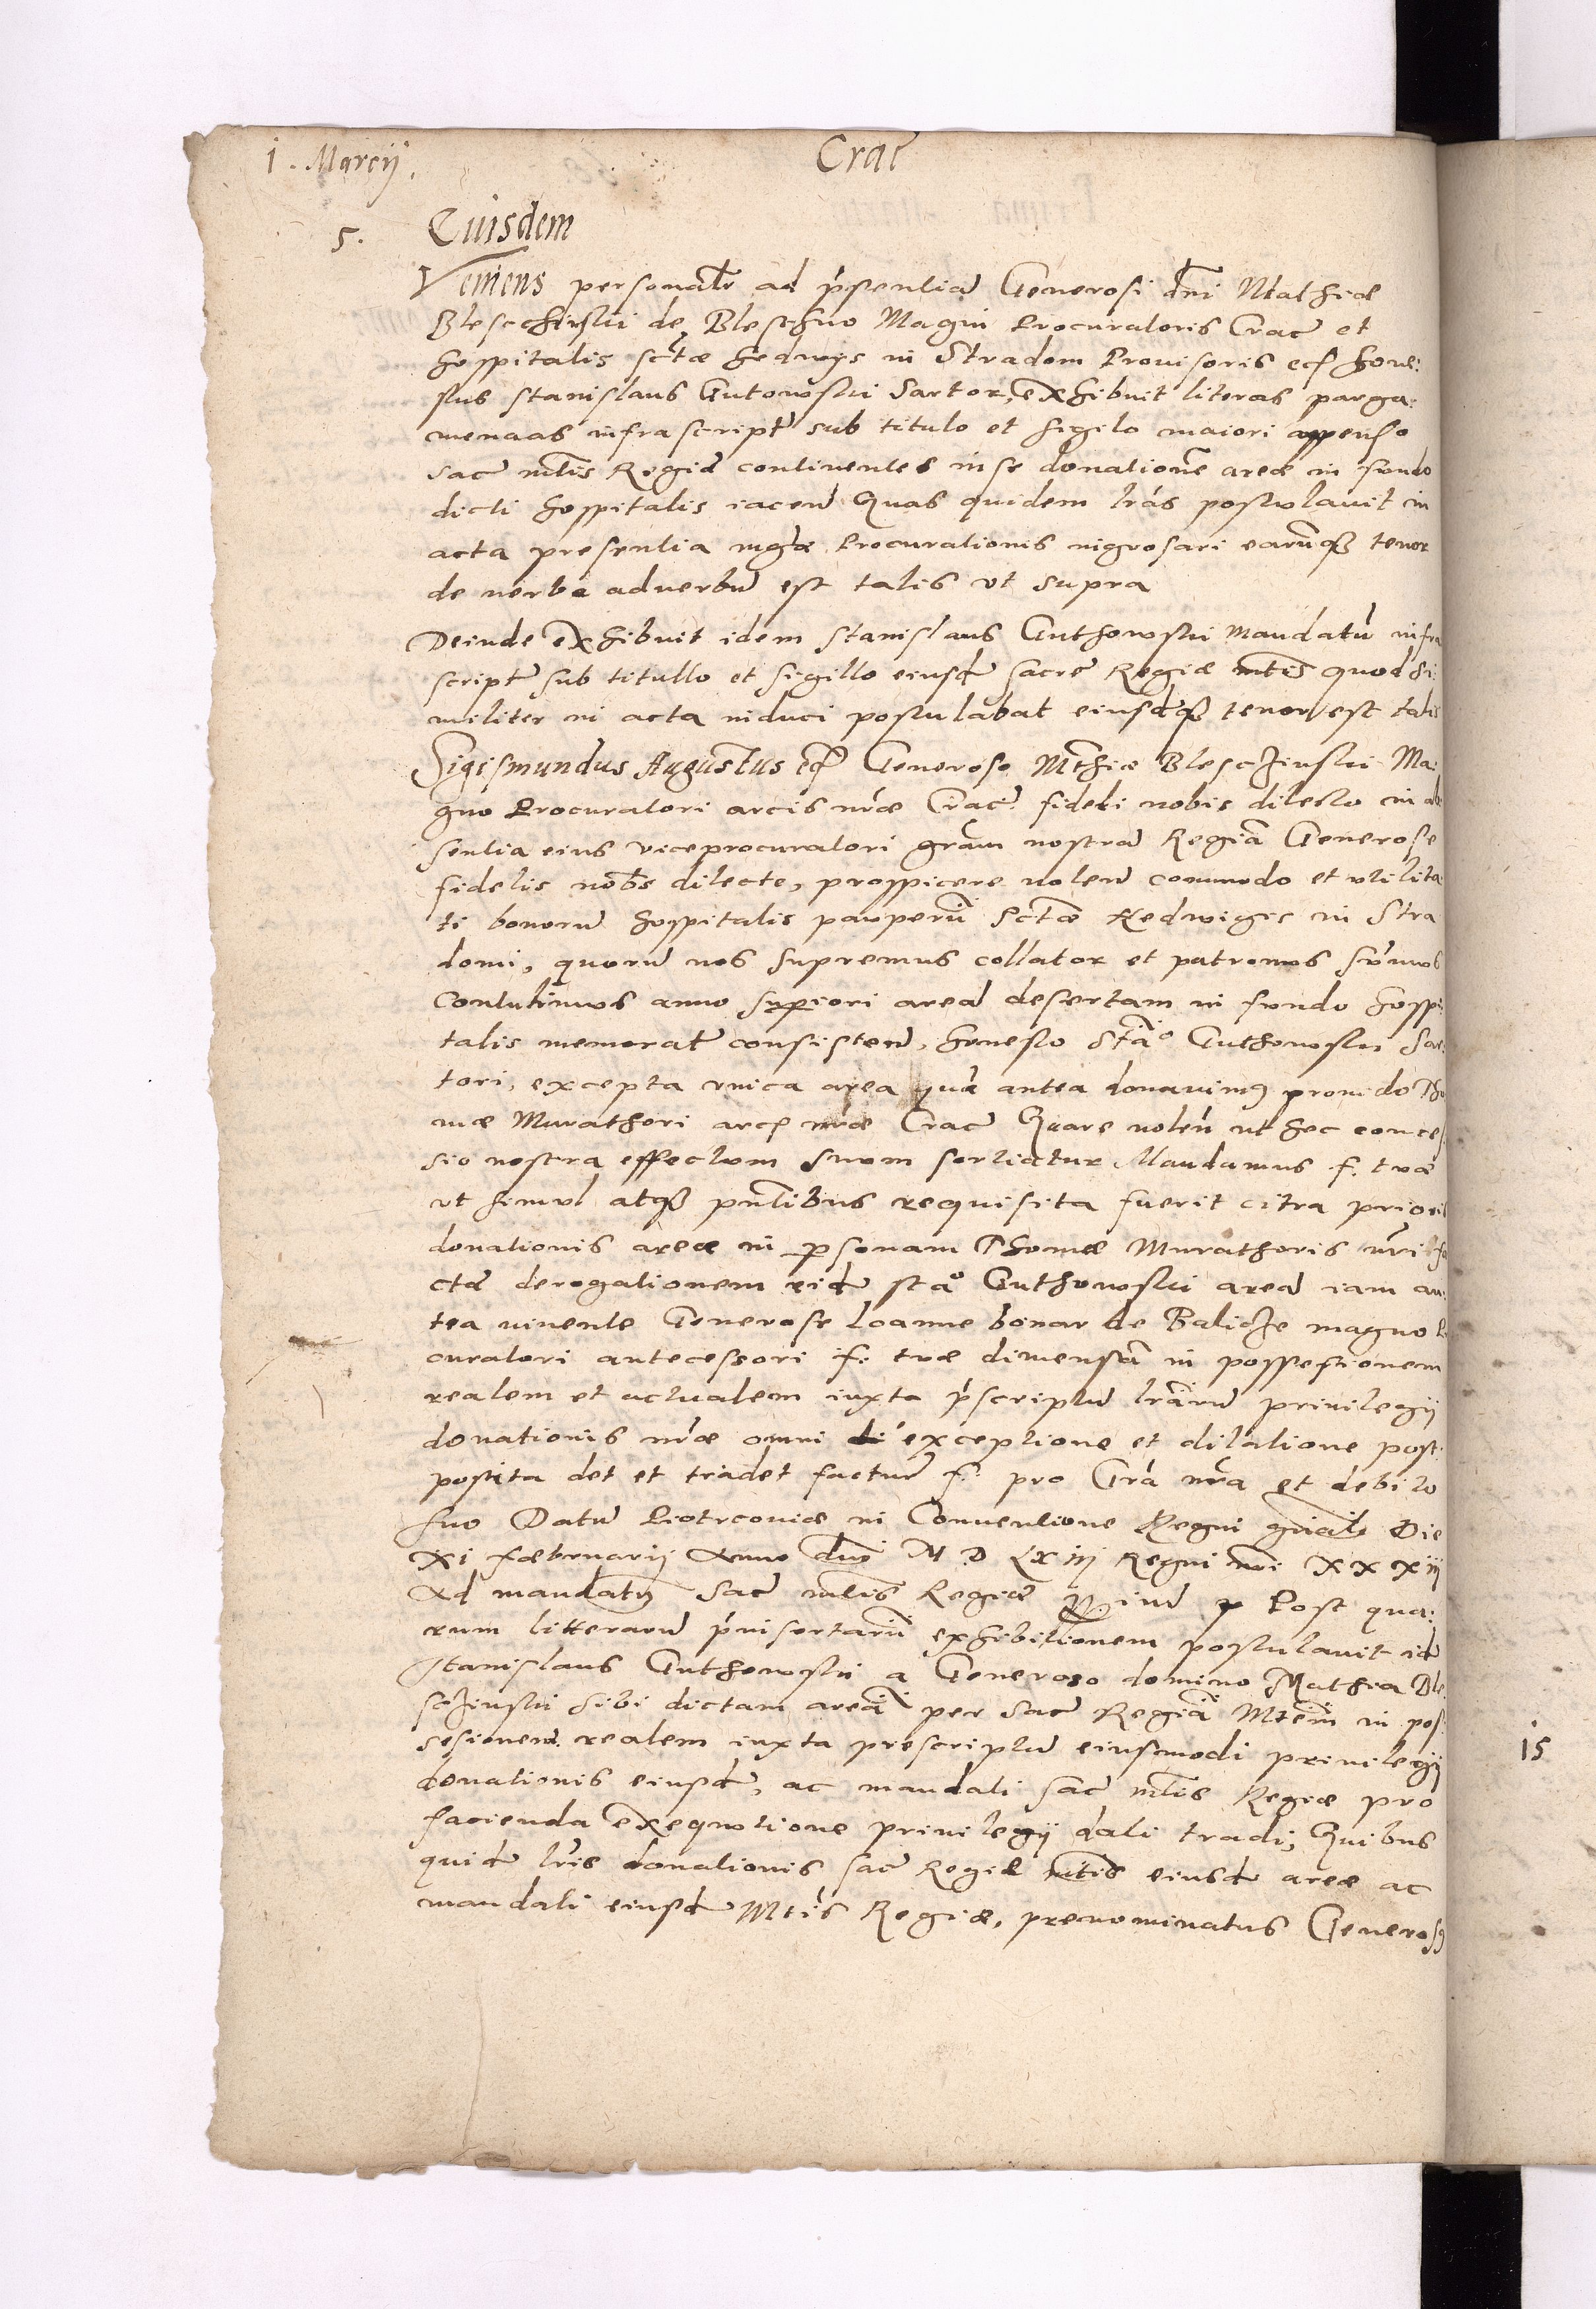 1. Marcij.
Crac̄
5. Euisdem
Veniens personalr̄ ad pn̄sentiā Generosi dn̄i Mathiæ
Bleschinski de Bleschno Magni Procuratoris Crac̄ et
hospitalis sctæ hedwijs in Stradom Provisoris ecz̄ hone:
stus stanislaus Gutowski Sartor, exhibuit literas parga:
menaas infrascript̄ sub titulo et sigilo maiori appenso
Sac̄ mtis Regiæ continentes in se donationē areæ in fundo
dicti hospitalis iacen̄ Quas quidem lrās postulavit in
acta presentia mgæ Procurationis ingrosari earūq₃ tenor
de uerbo aduerbū est talis vt supra
Deinde exhibuit idem stanislaus Guthowski mandatū infra
script̄ sub titullo et sigillo eiusd̄ sacræ Regiæ mtis quod si:
militer in acta induci postulabat eiusdq₃ tenor est talis
Sigismundus Augustus ecz̄ Generoso Mthiæ Bleschinski Ma:
gno Procuratori arcis nr̄æ Crac̄. fideli nobis dilecto in ab
sentia eius viceprocuratori grām nostrā Regiā Generose
fidelis nobs dilecte, prospicere uolen̄ commodo et vtilita
ti bonorū hospitalis pauperū sctæ Hedwigis in Stra
domi, quorū nos supremus collator et patronus sumus
Contulimus anno superiori areā desertam in fundo hospi:
talis memorat̄ consisten̄, honesto Sta° Guthowski Sar:
tori, excepta vnica area quā antea donauim₉ prouido Tho
mæ Murathori arcis nr̄æ Crac̄ Quare uolen̄ ut hec conces
sio nostra effectum suum sortiatur Mandamus f. tuæ
ut simul atq₃ pn̄tibus requisita fuerit citra prioris
donationis areæ in personam Thomæ Murathoris nr̄i fa
ctæ derogationem eid̄ sta° Guthowski areā iam an:
tea uiuente Generose Ioanne bonar de Balicze magno P
curatori antecessori f: tuæ dimensā in possessionem
realem et actualem iuxta pr̄scriptū lrārū priuilegij
donationis nr̄æ omni exceptione et dilatione post:
posita det et tradet factur̄ f: pro Grā nr̄a et debito
suo Datū Piotrcouiæ in Conuentione Regni gnāli Die
XI Fæbruarij Anno dni M D LXIII Regni nri XXXIII
Ad mandat̄ Sac̄ mtis Regiæ p Post qua:
rum litterarū pr̄insertarū exhibitionem postulauit id̄
Stanislaus Guthowski a Generoso domino Mathia Ble:
schinski sibi dictam areā per Sac̄ Regiā Mtem in pos:
sesionem realem iuxta prescriptū eiusmodi priuilegij
donationis eiusd̄, ac mandati sac̄ mtis Regiæ pro
facienda exequutione priuilegij dati tradi; Quibus
quid̄ lris donationis sac̄ Regiæ mtis eiusd̄ areæ ac
mandati eiusd̄ Mtis Regiæ, prenominatus Generos₉
15